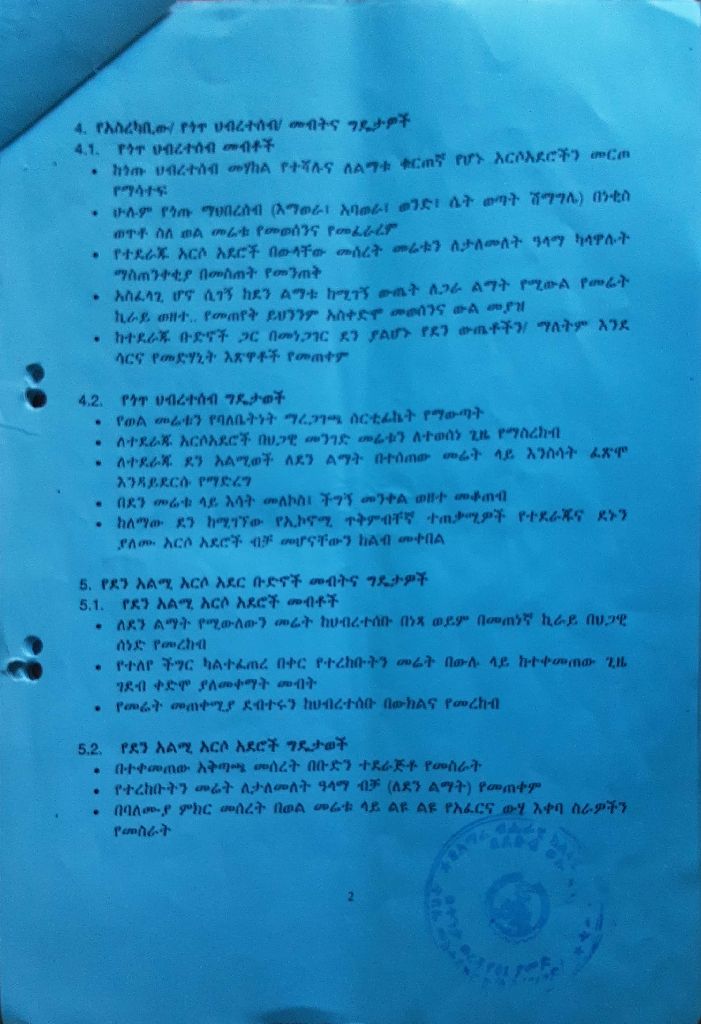 4. የአስረካቢው/ የጎጥ ህብረተሰብ/ መብትና ግዴታዎች
4.1. የጎጥ ህብረተሰብ መብቶች
• ከጎጡ ህብረተሰብ መሃከል የተሻሉና ለልማቱ ቁርጠኛ የሆኑ አርሶአደሮችን መርጦ
የማሳተፍ
• ሁሉም የጎጡ ማህበረሰብ (እማወራ፣ አባወራ፣ ወንድ፣ ሴት ወጣት ሽማግሌ) በነቂስ
ወጥቶ ስለ ወል መሬቱ የመወሰንና የመፈራረም
• የተደራጁ አርሶ አደሮች በውላቸው መሰረት መሬቱን ለታለመለት ዓላማ ካላዋሉት
ማስጠንቀቂያ በመስጠት የመንጠቅ
• አስፈላጊ ሆኖ ሲገኝ ከደን ልማቱ ከሚገኝ ውጤት ለጋራ ልማት የሚውል የመሬት
ኪራይ ወዘተ.. የመጠየቅ ይህንንም አስቀድሞ መወሰንና ውል መያዝ
• ከተደራጁ ቡድኖች ጋር በመነጋገር ደን ያልሆኑ የደን ውጤቶችን/ ማለትም እንደ
ሳርና የመድሃኒት እጸዋቶች የመጠቀም
4.2. የጎጥ ህብረተሰብ ግዴታወች
• የወል መሬቱን የባለቤትነት ማረጋገጫ ሰርቲፊኬት የማውጣት
• ለተደራጁ አርሶአደሮች በህጋዊ መንገድ መሬቱን ለተወሰነ ጊዜ የማስረከብ
• ለተደራጁ ደን አልሚወች ለደን ልማት በተሰጠው መሬት ላይ እንስሳት ፈጽሞ
እንዳይደርሱ የማድረግ
• በደን መሬቱ ላይ እሳት መለኮስ፣ ችግኝ መንቀል ወዘተ መቆጠብ
• ከለማው ደን ከሚገኘው የኢኮኖሚ ጥቅምብቸኛ ተጠቃሚዎች የተደራጁና ደኑን
ያለሙ አርሶ አደሮች ብቻ መሆናቸውን ከልብ መቀበል
5. የደን አልሚ አርሶ አደር ቡድኖች መብትና ግዴታዎች
5.1. የደን አልሚ አርሶ አደሮች መብቶች
• ለደን ልማት የሚውለውን መሬት ከህብረተሰቡ በነጻ ወይም በመጠነኛ ኪራይ በህጋዊ
ሰነድ የመረከብ
• የተለየ ችግር ካልተፈጠረ በቀር የተረከቡትን መሬት በውሉ ላይ ከተቀመጠው ጊዜ
ገደብ ቀድሞ ያለመቀማት መብት
• የመሬት መጠቀሚያ ደብተሩን ከህብረተሰቡ በውክልና የመረከብ
5.2. የደን አልሚ አርሶ አደሮች ግዴታወች
• በተቀመጠው አቅጣጫ መሰረት በቡድን ተደራጅቶ የመስራት
• የተረከቡትን መሬት ለታለመለት ዓላማ ብቻ (ለደን ልማት) የመጠቀም
• በባለሙያ ምክር መሰረት በወል መሬቱ ላይ ልዩ ልዩ የአፈርና ውሃ እቀባ ስራዎችን
የመስራት
2